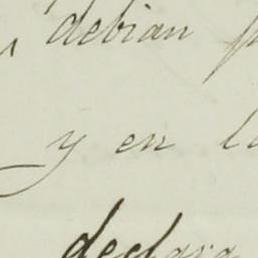 debian
y en
declara